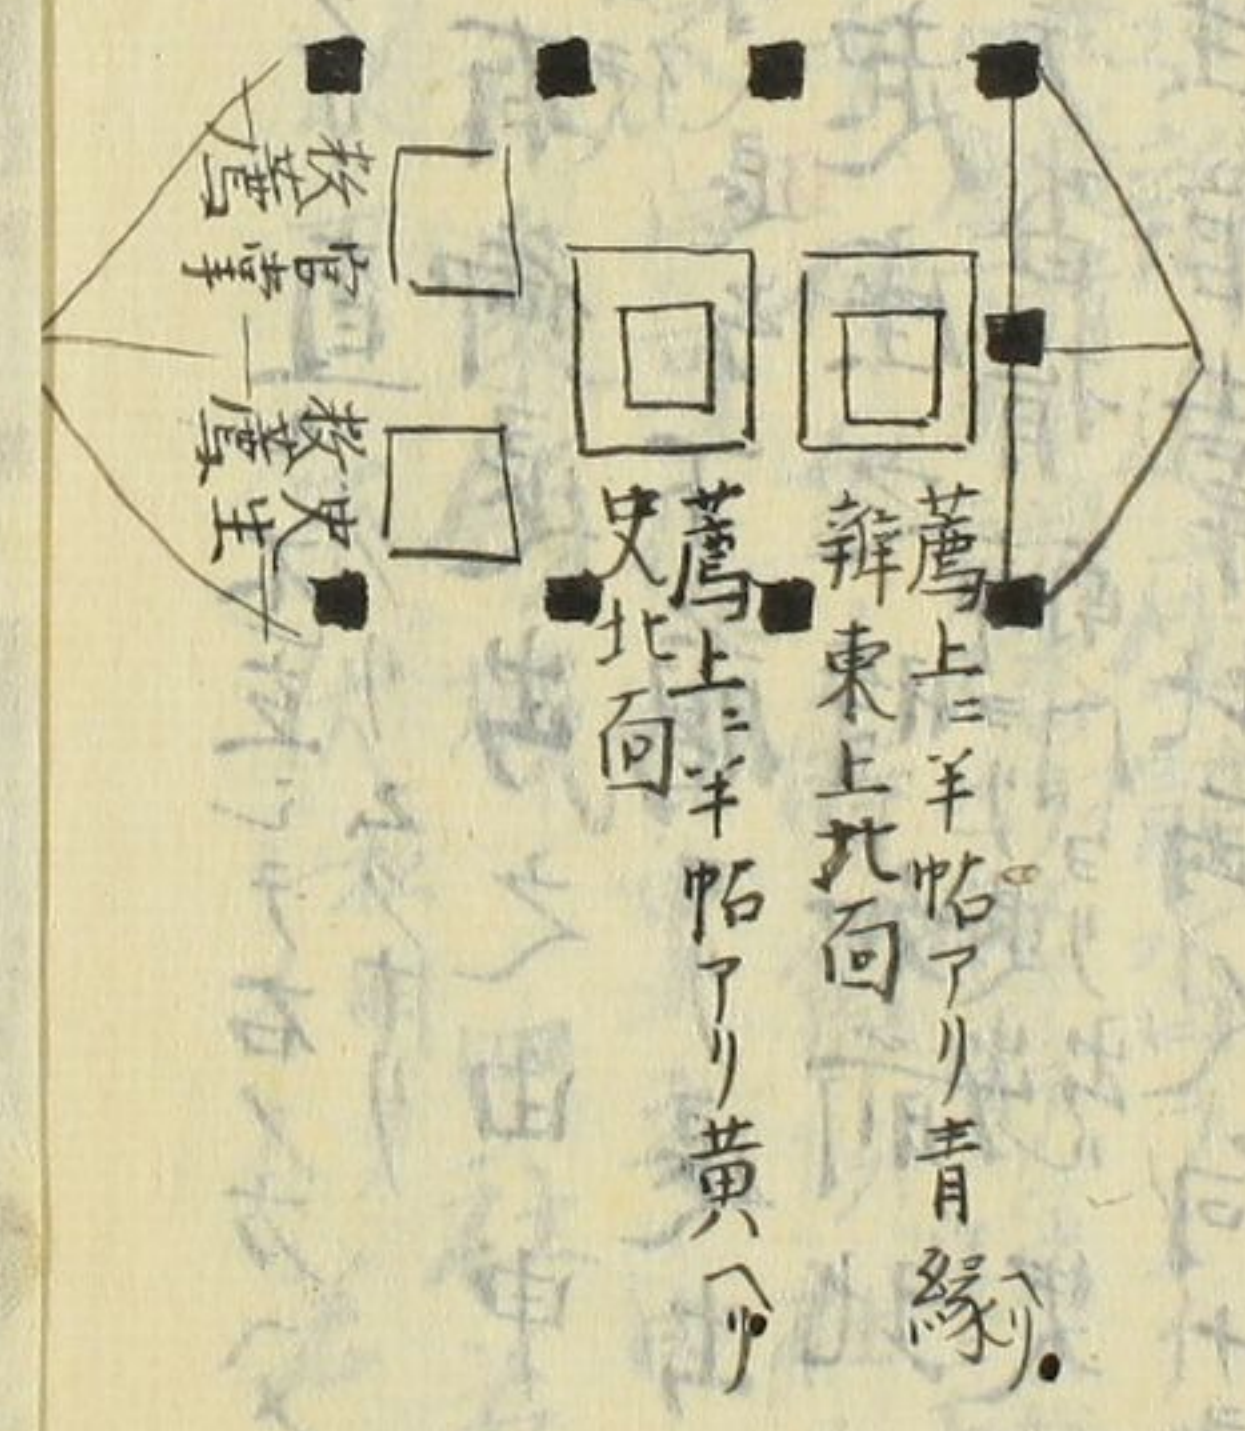 薦上ニ半帖アリ青縁ヘリ
辨東上北面
薦上ニ半帖アリ黄ヘリ
史北面
史生
敷薦
官掌
敷薦